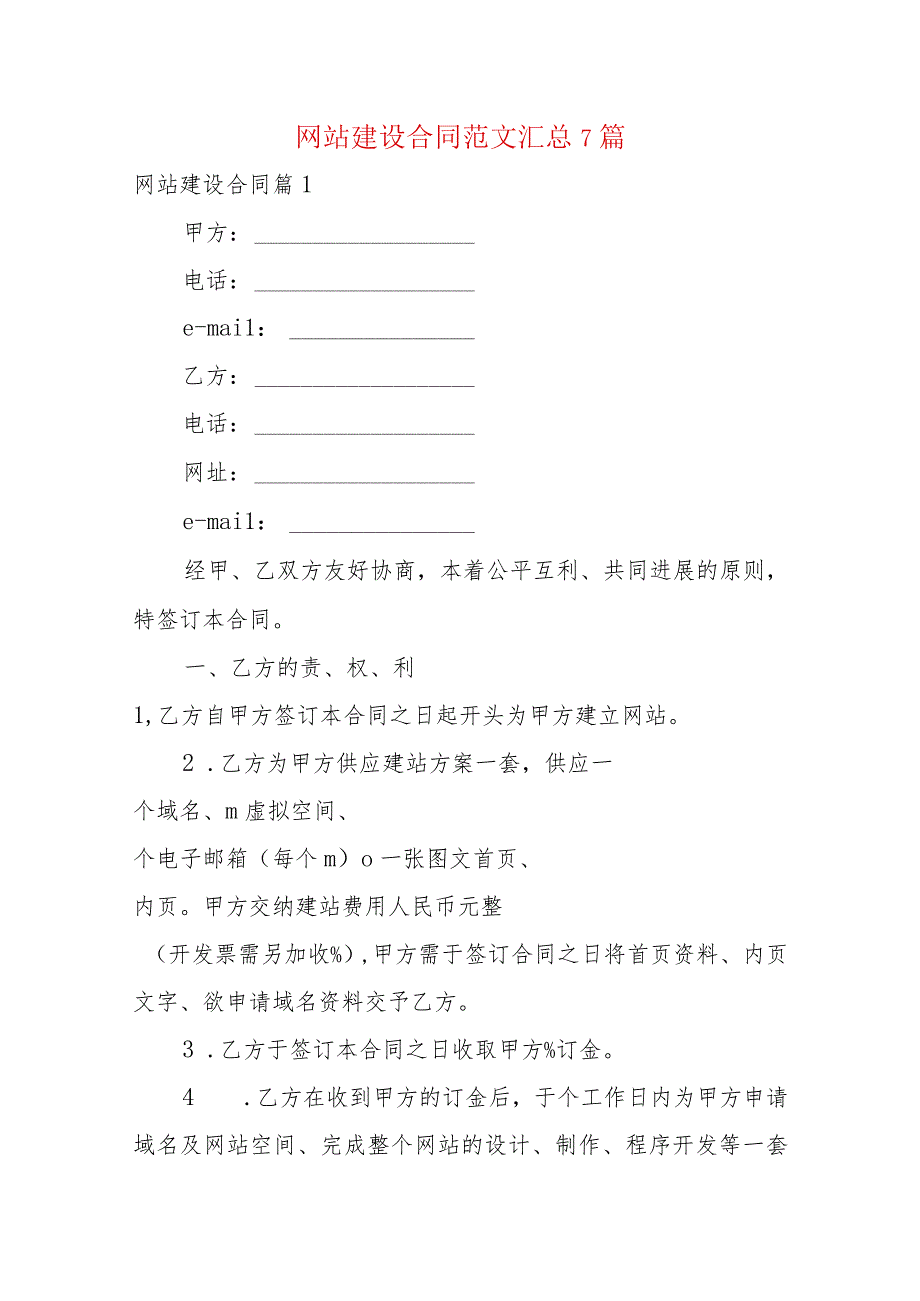 网站建设合同范文汇总7篇
网站建设合同篇1
甲方：___________________
电话：___________________
e-mai1： ________________
乙方：___________________
电话：___________________
网址：___________________
e-mai1： ________________
经甲、乙双方友好协商，本着公平互利、共同进展的原则，
特签订本合同。
一、乙方的责、权、利
1,乙方自甲方签订本合同之日起开头为甲方建立网站。
2 .乙方为甲方供应建站方案一套，供应一
个域名、m虚拟空间、
个电子邮箱（每个m）o一张图文首页、
内页。甲方交纳建站费用人民币元整
（开发票需另加收%）,甲方需于签订合同之日将首页资料、内页
文字、欲申请域名资料交予乙方。
3 .乙方于签订本合同之日收取甲方%订金。
4 .乙方在收到甲方的订金后，于个工作日内为甲方申请
域名及网站空间、完成整个网站的设计、制作、程序开发等一套